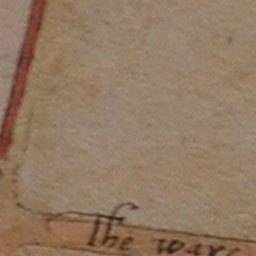 The warr